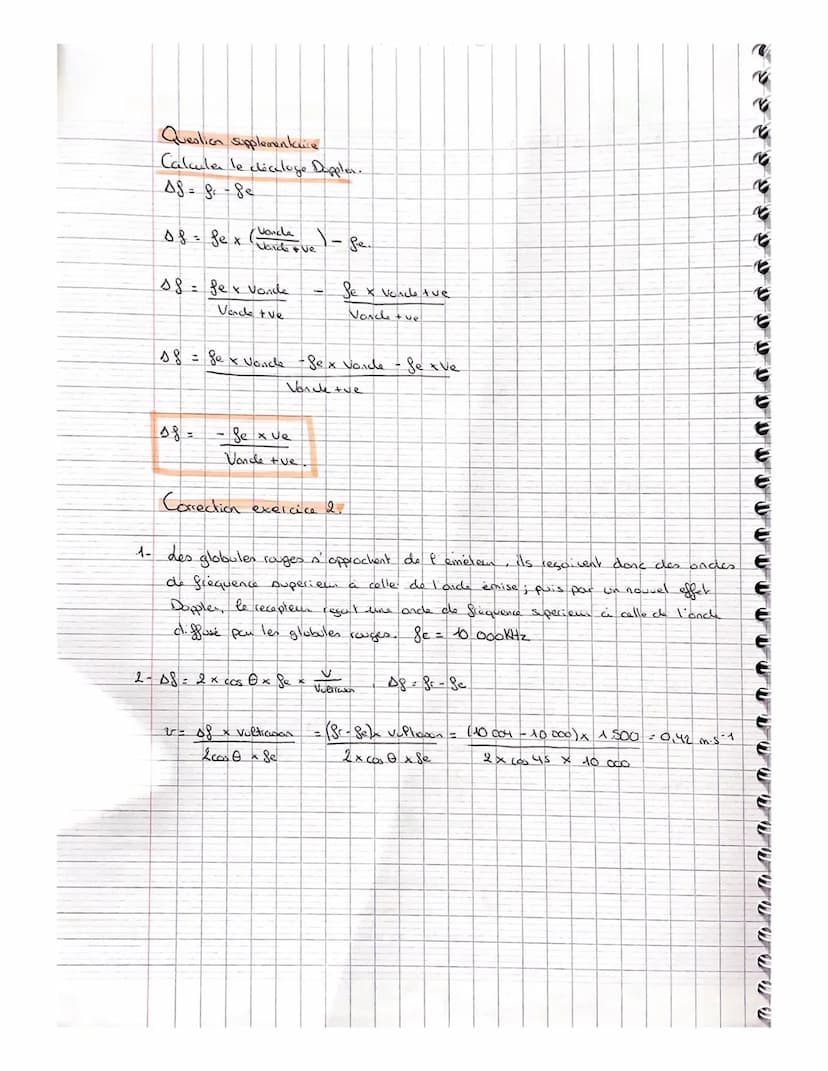 Question supplementaire
Calculer le décalage Doppler.
Δf = fr - fe
Δf = fe x (Vonde / Vonde + ve) - fe.
Δf = fe x Vonde / Vonde + ve - fe x Vonde + ve / Vonde + ve
Δf = fe x Vonde - fe x Vonde - fe x ve / Vonde + ve
Δf = - fe x ve / Vonde + ve.
Correction exercice 2.
1- des globules rouges s'approchent de l'émeteur, ils reçoivent donc des ondes
de fréquence superieur à celle de l'onde émise ; puis par un nouvel effet
Doppler, le recepteur reçoit une onde de fréquence superieur à celle de l'onde
diffusé par les globules rouges. fe = 10 000 KHz
2- Δf = 2 x cos θ x fe x V / Vultrason , Δf = fr - fe
v = Δf x Vultrason / 2cos θ x fe = (fr - fe) x Vultrason / 2 x cos θ x fe = (10 004 - 10 000) x 1 500 / 2 x cos 45 x 10 000 = 0,42 m.s⁻¹